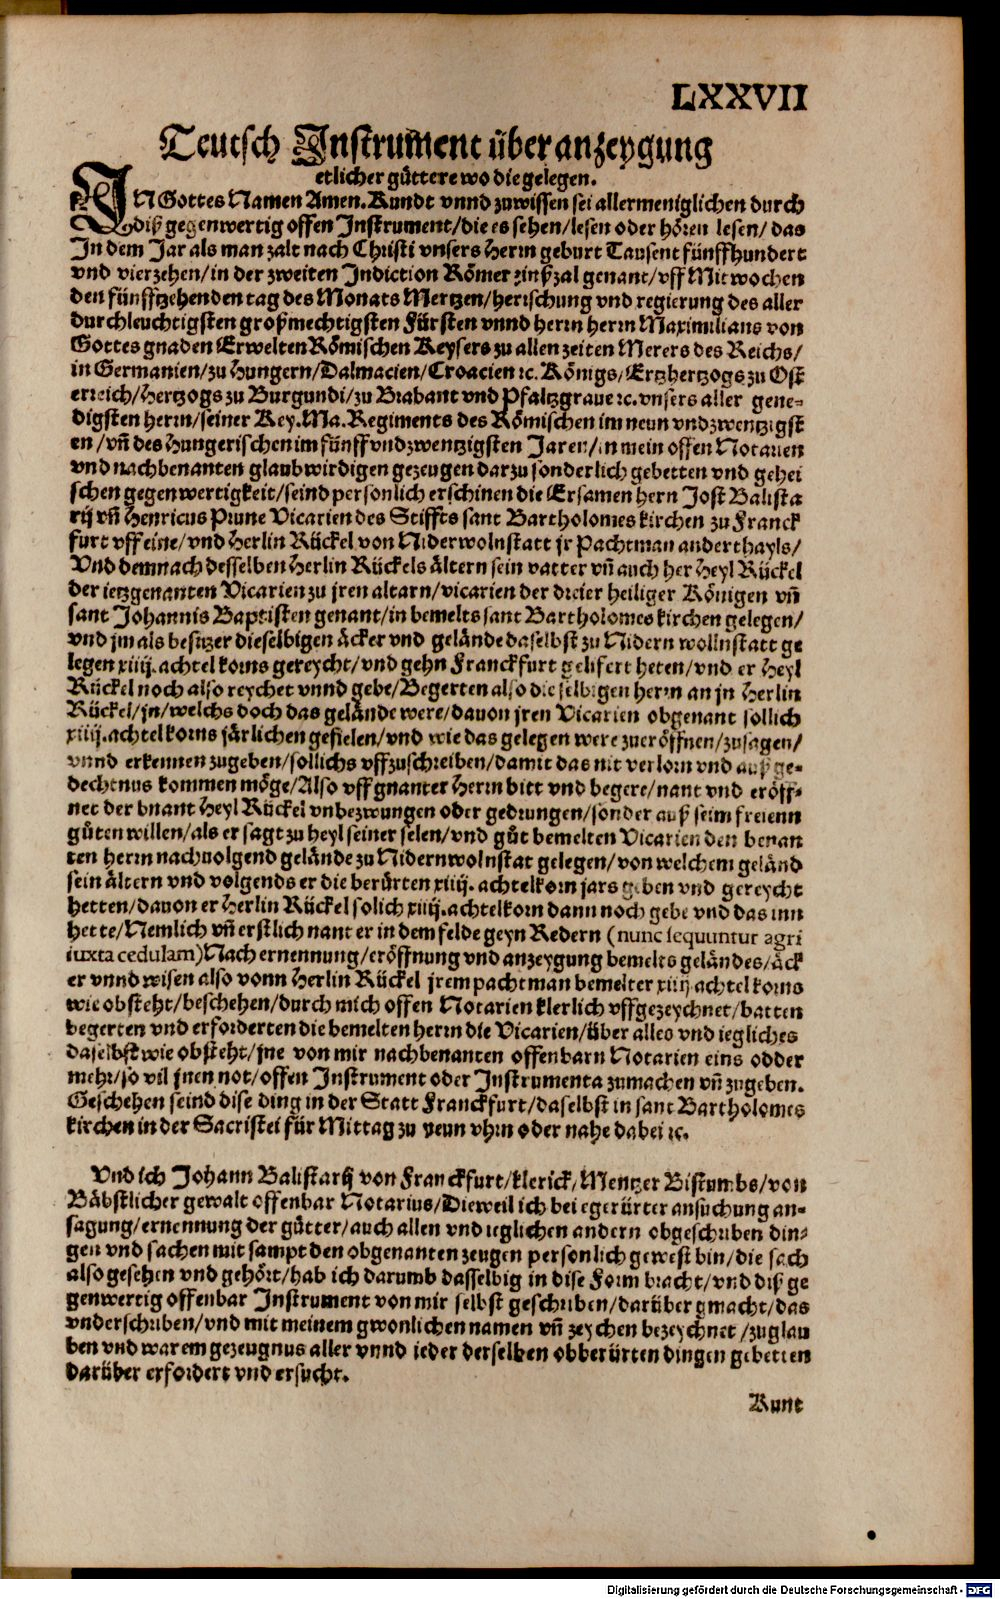 LXXVII
Teutsch Instrument über anzeygung
etlicher güttere wo die gelegen.
IN Gottes Namen Amen. Kundt vnnd zuwissen sei allermeniglichen durch
diß gegenwertig offen Instrument/die es sehen/lesen oder hören lesen/ das
In dem Jar als man zalt nach Christi vnsers herrn geburt Tausent fünffhundert
vnd vierzehen/in der zweiten Indiction Römer zinßzal genant/vff Mitwochen
den fünfftzehenden tag des Monats Mertzen/herrschung vnd regierung des aller
durchleuchtigsten großmechtigsten Fürsten vnnd herrn herrn Maximilians von
Gottes gnaden Erwelten Römischen Keysers zu allen zeiten Merers des Reichs/
in Germanien/zu Hungern/Dalmacien/Croacien ⁊c. Königs/Ertzhertzogs zu Ost
erreich/Hertzogs zu Burgundi/zu Brabant vnd Pfaltzgraue ⁊c. vnsers aller gene-
digsten herrn/seiner Key. Ma. Regiments des Römischen im neun vnd zwentzigst
en/vñ des Hungerischen im fünff vnd zwentzigsten Jaren/in mein offen Notarien
vnd nachbenanten glaubwirdigen gezeugen darzu sonderlich gebetten vnd gehei
schen gegenwertigkeit/seind personlich erschinen die Ersamen hern Jost Balista
rij vñ Henricus Prune Vicarien des Stiffts sant Bartholomes kirchen zu Franck
furt vff eine/vnd Herlin Rückel von Niderwolnstatt jr Pachtman anderthayls/
Vnd demnach desselben Herlin Rückels ältern sein vatter vñ auch her Heyl Rückel
der ietzgenanten Vicarien zu jren altarn/vicarien der dreier heiliger Königen vñ
sant Johannis Baptisten genant/in bemelts sant Bartholomes kirchen gelegen/
vnd jm als besitzer dieselbigen äcker vnd gelände daselbst zu Nidern wollnstatt ge
legen xiiij. achtel korns gereycht/vnd gehn Franckfurt gelifert heten/vnd er Heyl
Rückel noch also reychet vnnd gebe/Begerten also die selbigen herrn an jn Herlin
Rückel/jn/welchs doch das gelände were/dauon jren Vicarien obgenant sollich
xiiij. achtel korns järlichen gefielen/vnd wie das gelegen were zueröffnen/zusagen/
vnnd erkennen zugeben/sollichs vffzuschreiben/damit das nit verlorn vnd auß ge-
dechtnus kommen möge/Also vff gnanter Herrn bitt vnd begere/nant vnd eröff-
net der bnant Heyl Rückel vnbezwungen oder gedrungen/sonder auß seim freienn
güten willen/als er sagt zu heyl seiner selen/vnd güt bemelten Vicarien den benan
ten herrn nachuolgend gelände zu Nidernwolnstat gelegen/von welchem geländ
sein ältern vnd volgends er die berürten xiiij. achtelkorn jars geben vnd gereycht
hetten/dauon er Herlin Rückel solich xiiij. achtelkorn dann noch gebe vnd das inn
hette/Nemlich vñ erstlich nant er in dem felde geyn Redern (nunc sequuntur agri
iuxta cedulam) Nach ernennung/eröffnung vnd anzeygung bemelts geländes/äck
er vnnd wisen also vonn Herlin Rückel jrem pachtman bemelter xiiij achtel korns
wie obsteht/beschehen/durch mich offen Notarien klerlich vffgezeychnet/batten
begerten vnd erforderten die bemelten herrn die Vicarien/über alles vnd iegliches
daselbst wie obsteht/jne von mir nachbenanten offenbarn Notarien eins odder
mehr/so vil jnen not/offen Instrument oder Instrumenta zumachen vñ zugeben.
Geschehen seind dise ding in der Statt Franckfurt/daselbst in sant Bartholomes
kirchen in der Sacristei für Mittag zu neun vhrn oder nahe dabei ⁊c.
Vnd ich Johann Balistarij von Franckfurt/klerick/Mentzer Bistumbs/von
Bäbstlicher gewalt offenbar Notarius/Dieweil ich bei egerürter ansuchung an-
sagung/ernennung der gütter/auch allen vnd ieglichen andern obgeschriben din-
gen vnd sachen mit sampt den obgenanten zeugen personlich gewest bin/die sach
also gesehen vnd gehört/hab ich darumb dasselbig in dise Form bracht/vnd diß ge
genwertig offenbar Instrument von mir selbst geschriben/darüber gmacht/das
vnderschriben/vnd mit meinem gwonlichen namen vñ zeychen bezeychnet/zuglau
ben vnd warem gezeugnus aller vnnd ieder derselben obberürten dingen gebetten
darüber erfordert vnd ersucht.
Kunt
Digitalisierung gefördert durch die Deutsche Forschungsgemeinschaft - DFG